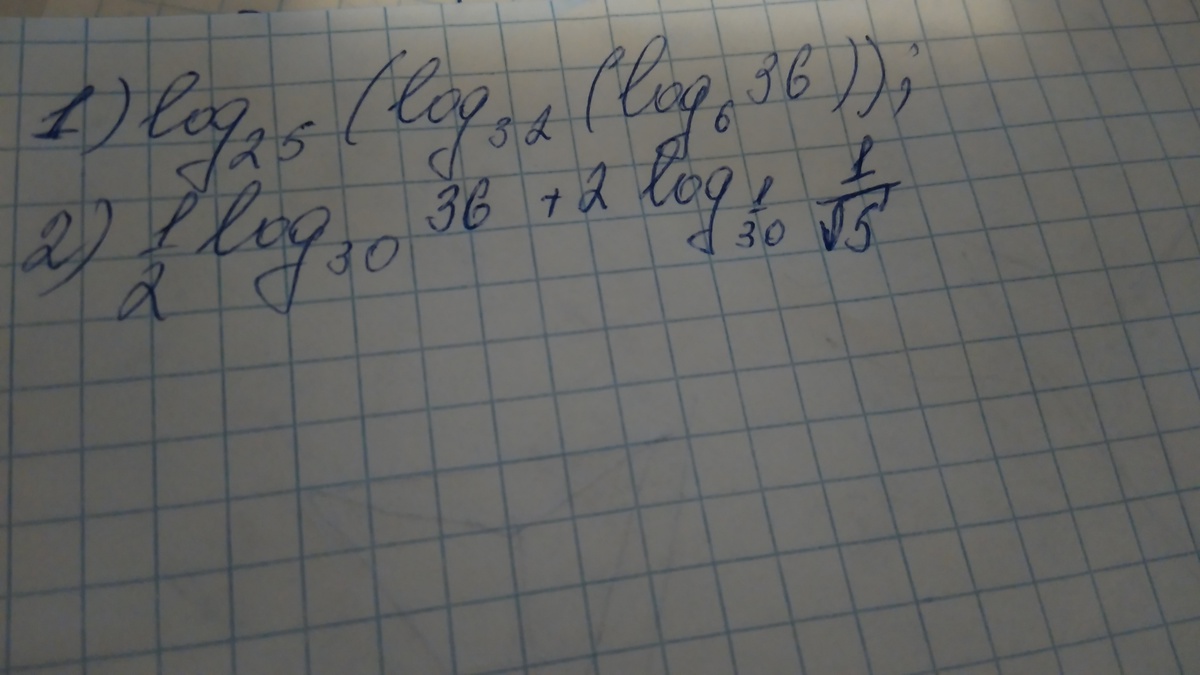 1) log₂₅ (log₃₂ (log₆ 36));
2) 1/2 log₃₀ 36 + 2 log_{1/30} 1/√5